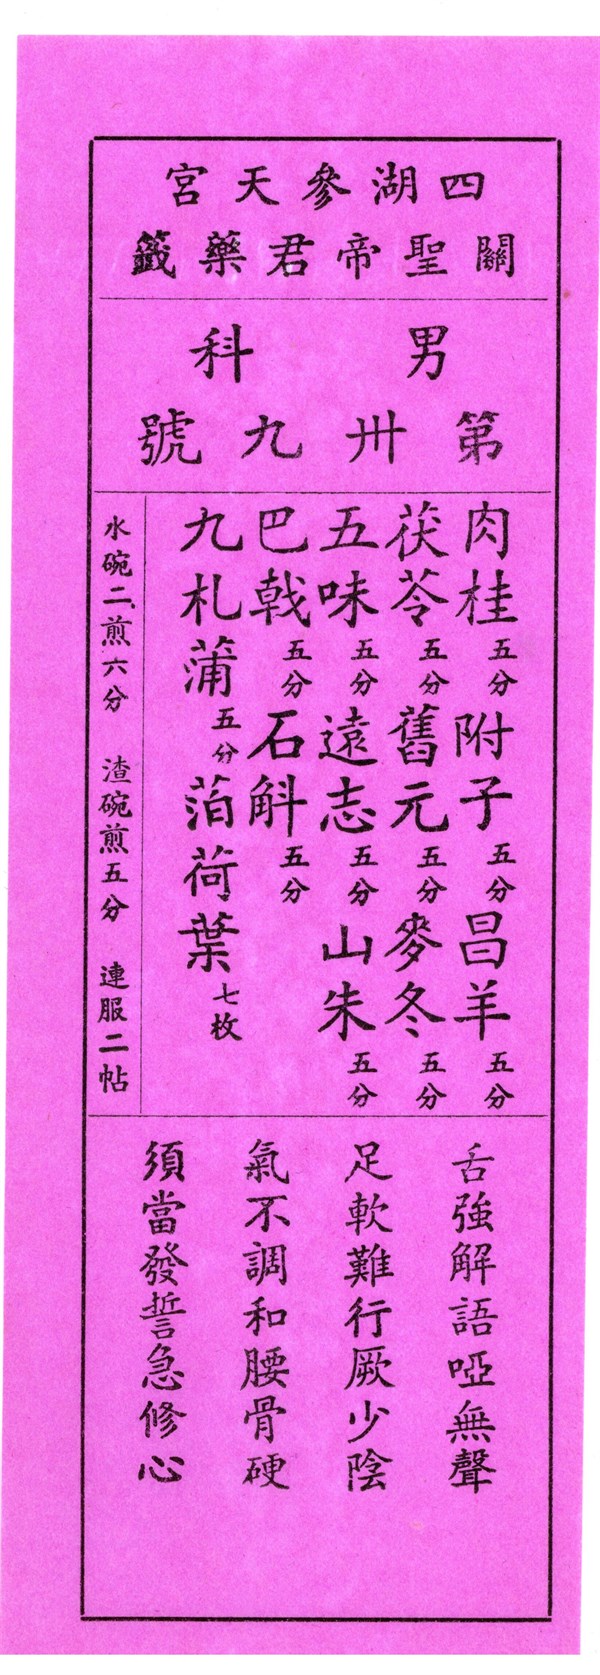 四湖參天宮
關聖帝君藥籤
男科
第卅九號
肉桂五分 附子五分 昌羊五分
茯苓五分 舊元五分 麥冬五分
五味五分 遠志五分 山朱五分
巴戟五分 石斛五分
九札蒲五分 萡荷葉七枚
水碗二煎六分 渣碗煎五分 連服二帖
舌強解語啞無聲
足軟難行厥少陰
氣不調和腰骨硬
須當發誓急修心